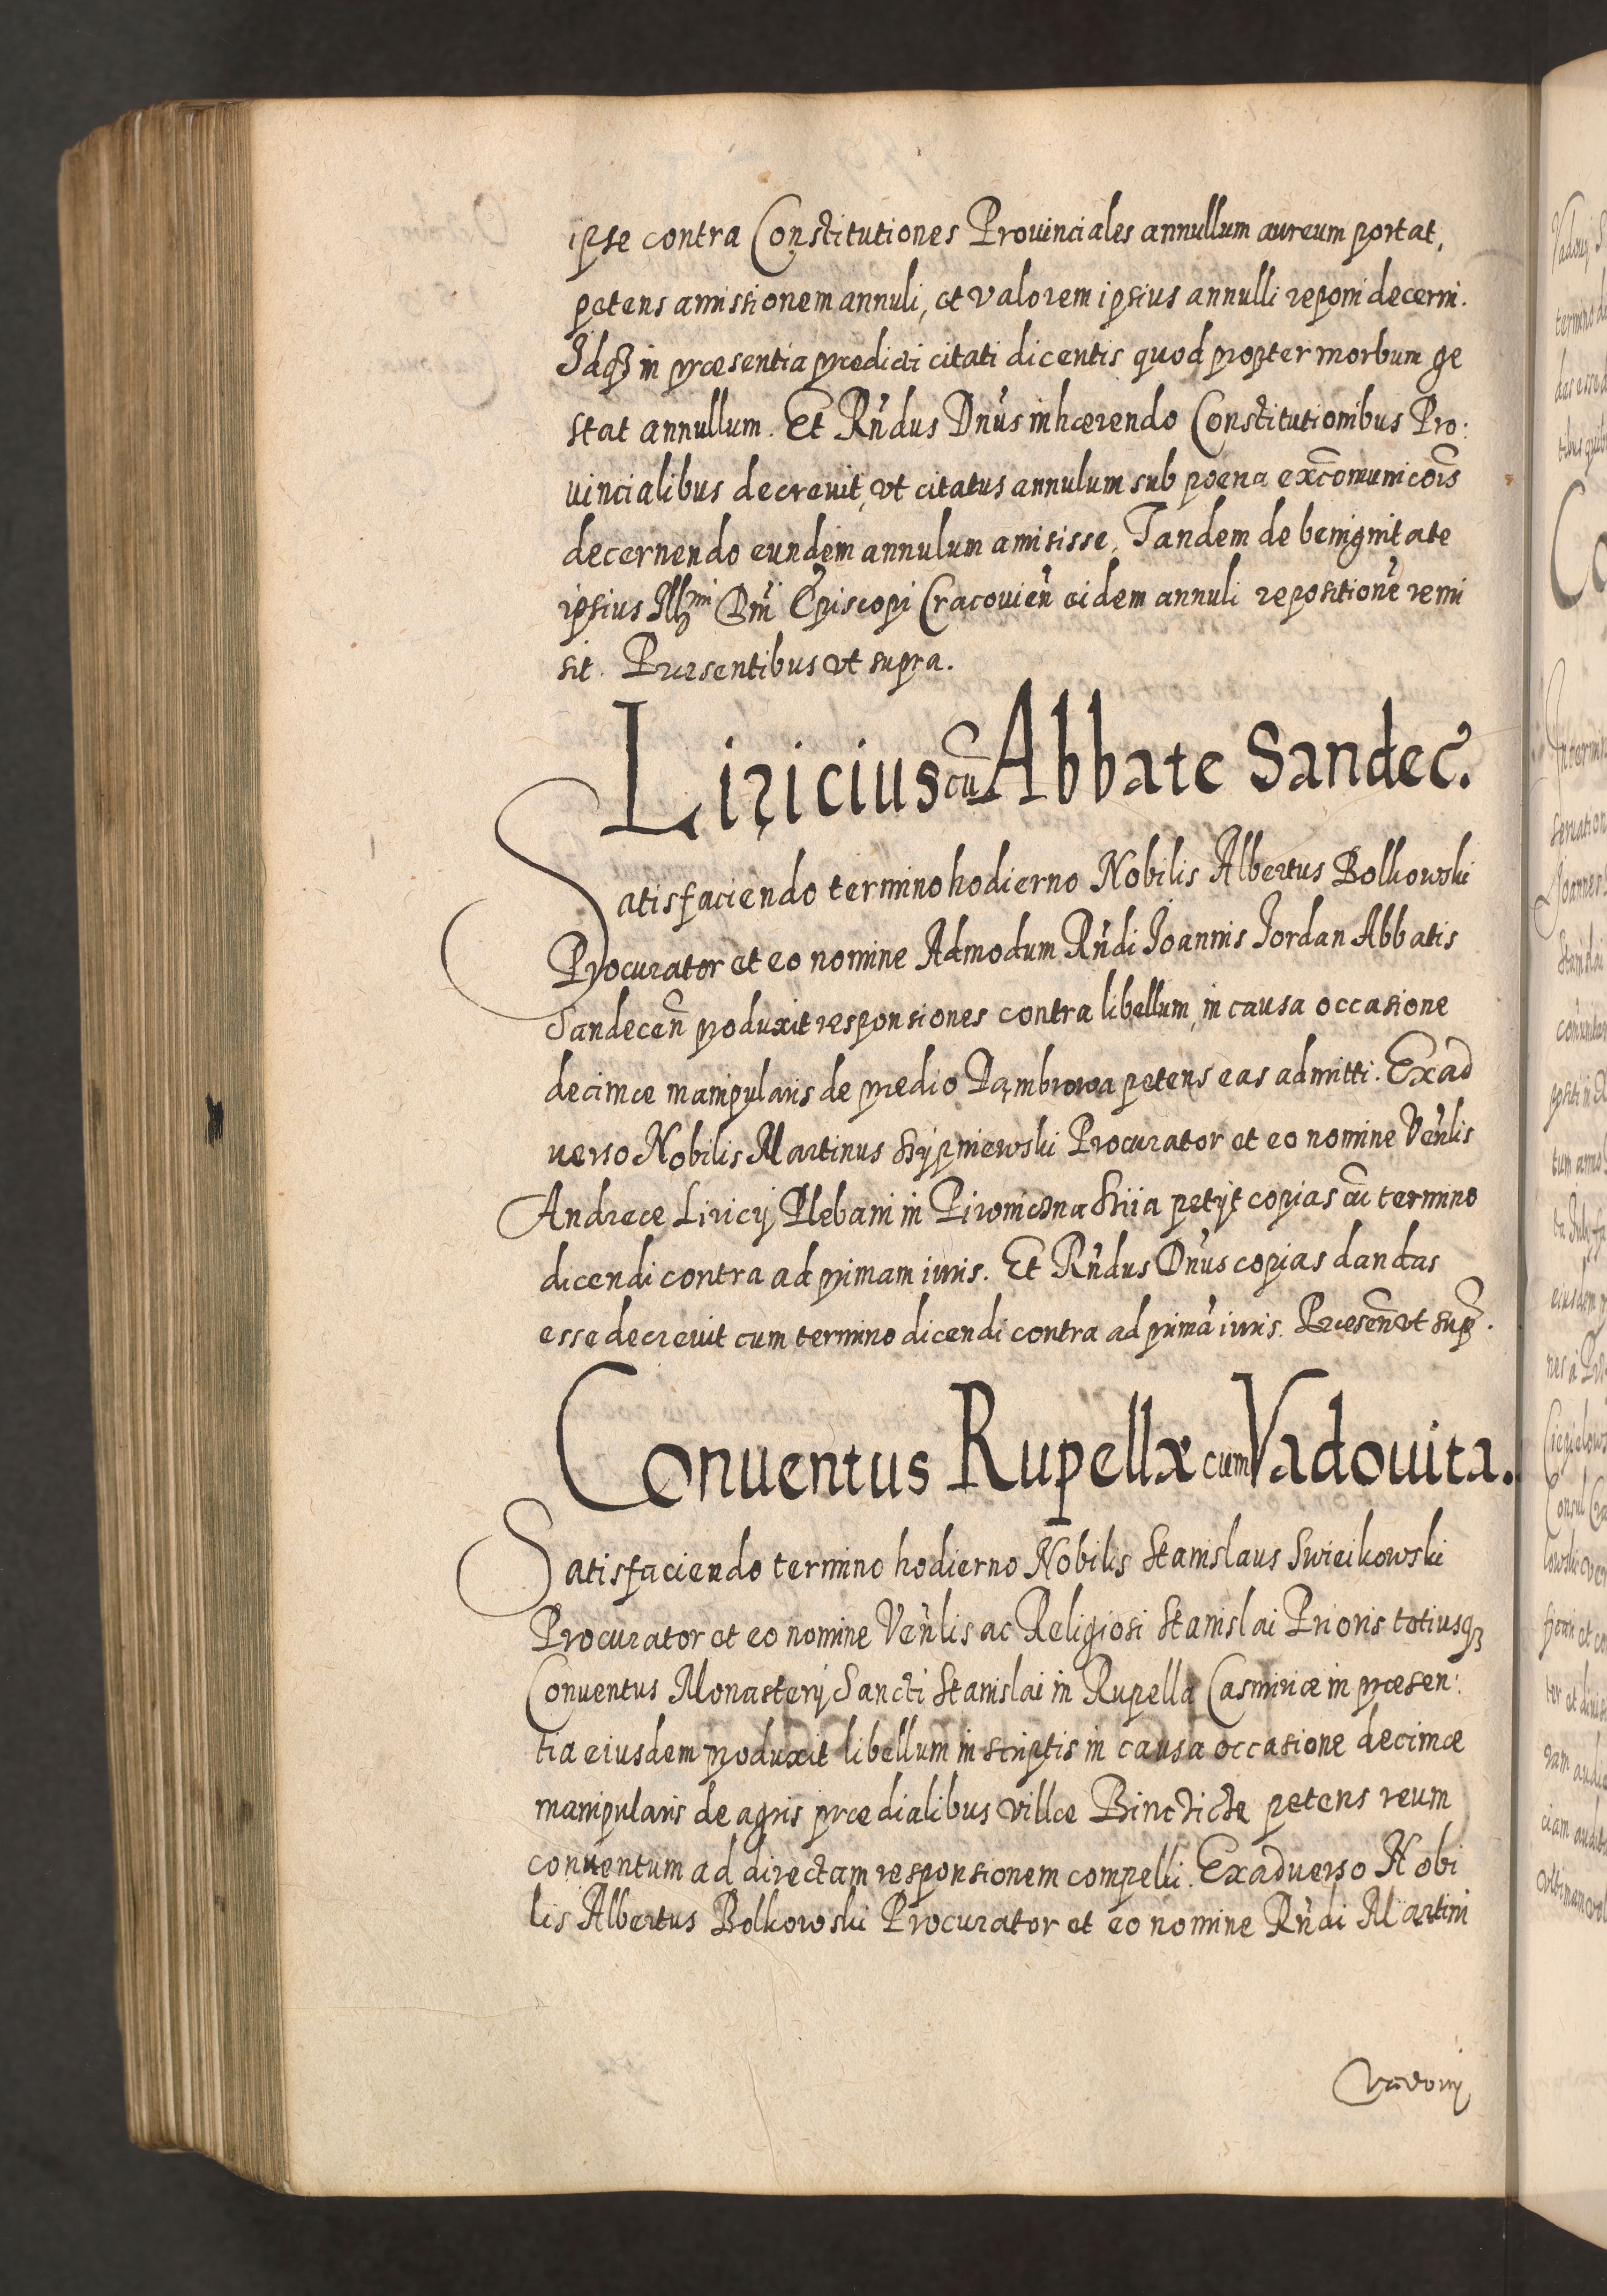 ipse contra Constitutiones Prouinciales annullum aureum portat,
petens amissionem annuli, et valorem ipsius annulli reponi decerni.
Idqȝ in præsentia prædicti citati dicentis quod propter morbum ge
stat annullum. Et Rńdus Dńus inhærendo Constitutionibus Pro:
uincialibus decreuit, vt citatus annulum sub poena excōmunicōis
decernendo eundem annulum amisisse. Tandem de benignitate
ipsius Illmi Dńi Episcopi Cracouień eidem annuli repositionē remi
sit. Præsentibus vt supra.
Liricius cū Abbate Sandec.
Satisfaciendo termino hodierno Nobilis Albertus Bolkowski
Procurator et eo nomine Admodum Rńdi Joannis Jordan Abbatis
Sandeceń produxit responsiones contra libellum, in causa occasione
decimæ manipularis de prædio Dąmbrowa petens eas admitti. Exad
uerso Nobilis Martinus Srzypniewski Procurator et eo nomine Veńlis
Andreæ Liricij Plebani in petijt copias cū termino
dicendi contra ad primam iuris. Et Rńdus Dńus copias dandas
esse decreuit cum termino dicendi contra ad primā iuris. Præseń vt sup.
Conuentus Rupellæ cum Vadouita.
Satisfaciendo termino hodierno Nobilis Stanislaus Swieikowski
Procurator et eo nomine Veńlis ac Religiosi Stanislai Prioris totiusqȝ
Conuentus Monasterij Sancti Stanislai in Rupella Casimiriæ in præsen:
tia eiusdem produxit libellum in scriptis in causa occasione decimæ
manipularis de agris prædialibus villæ petens reum
conuentum ad directam responsionem compelli. Exaduerso Nobi
lis Albertus Bolkowski Procurator et eo nomine Rńdi Martini
Vadouij